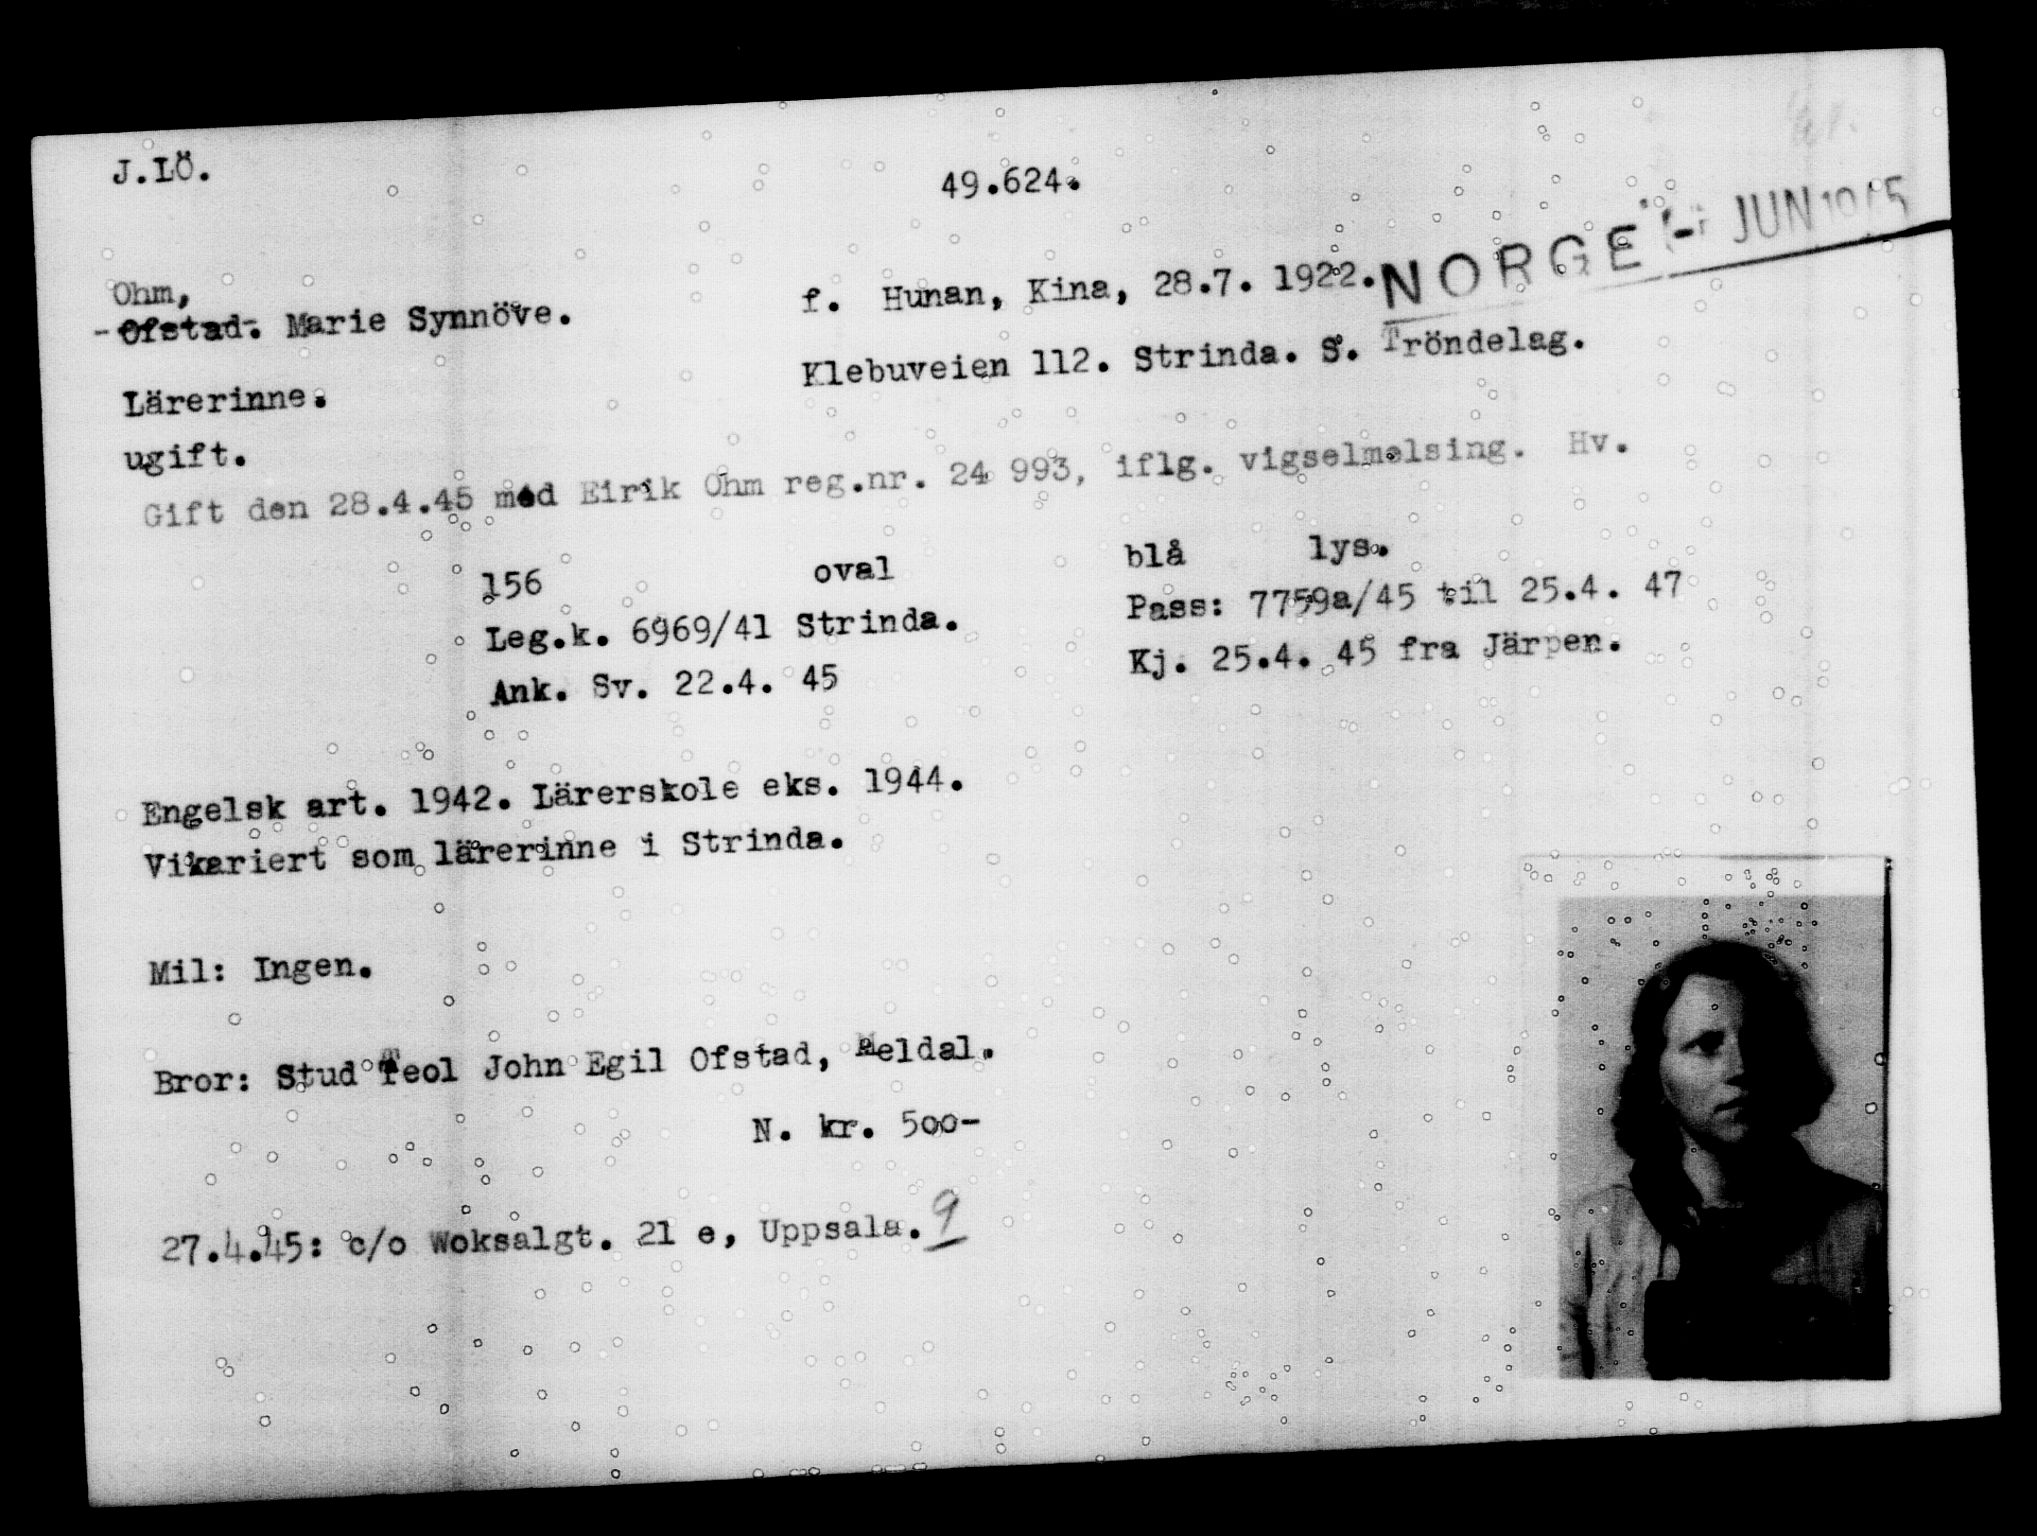 J.LÖ.
49.624.
NORGE - JUN 1945
Ohm,
Ofstad. Marie Synnöve.
f. Hunan, Kina, 28.7. 1922.
Klebuveien 112. Strinda. S. Tröndelag.
Lärerinne.
ugift.
Gift den 28.4.45 med Eirik Ohm reg.nr. 24 993, iflg. vigselmelsing. Hv.
156 oval blå lys.
Leg.k. 6969/41 Strinda. Pass: 7759a/45 til 25.4. 47
Ank. Sv. 22.4. 45 Kj. 25.4. 45 fra Järpen.
Engelsk art. 1942. Lärerskole eks. 1944.
Vikariert som lärerinne i Strinda.
Mil: Ingen.
Bror: Stud Teol John Egil Ofstad, Meldal.
N. kr. 500-
27.4.45: c/o Woksalgt. 21 e, Uppsala. 9